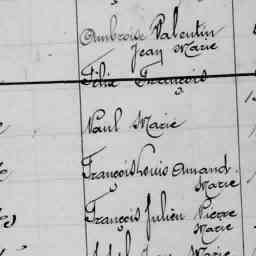 Ambroise Valentin
Jean Marie
Félix François
Paul Marie
François Louis Amand
Marie
François Julien Pierre
Marie
Marie